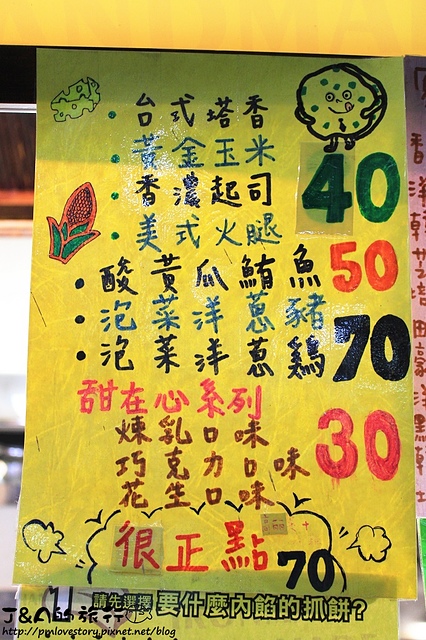 · 台式塔香
· 黃金玉米
· 香濃起司
· 美式火腿
40
· 酸黃瓜鮪魚 50
· 泡菜洋蔥豬
· 泡菜洋蔥鷄
70
甜在心系列
煉乳口味
巧克力口味
花生口味
30
很正點 70
請先選擇 要什麼內餡的抓餅?
J&A的旅行
http://pmlovestory.pixnet.net/blog